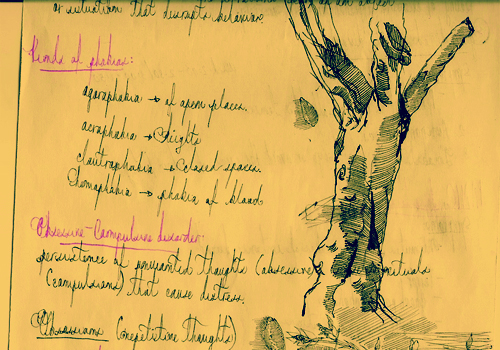 or situation that disrupts behavior
Kinds of phobias:
agoraphobia → of open places.
acrophobia → Heights
claustrophobia → closed spaces.
Hemophobia → phobia of blood
Obsessive-Compulsive disorder
persistence of unwanted thoughts (obsessions) rituals
(compulsions) that cause distress.
Obsessions (repetitive thoughts)